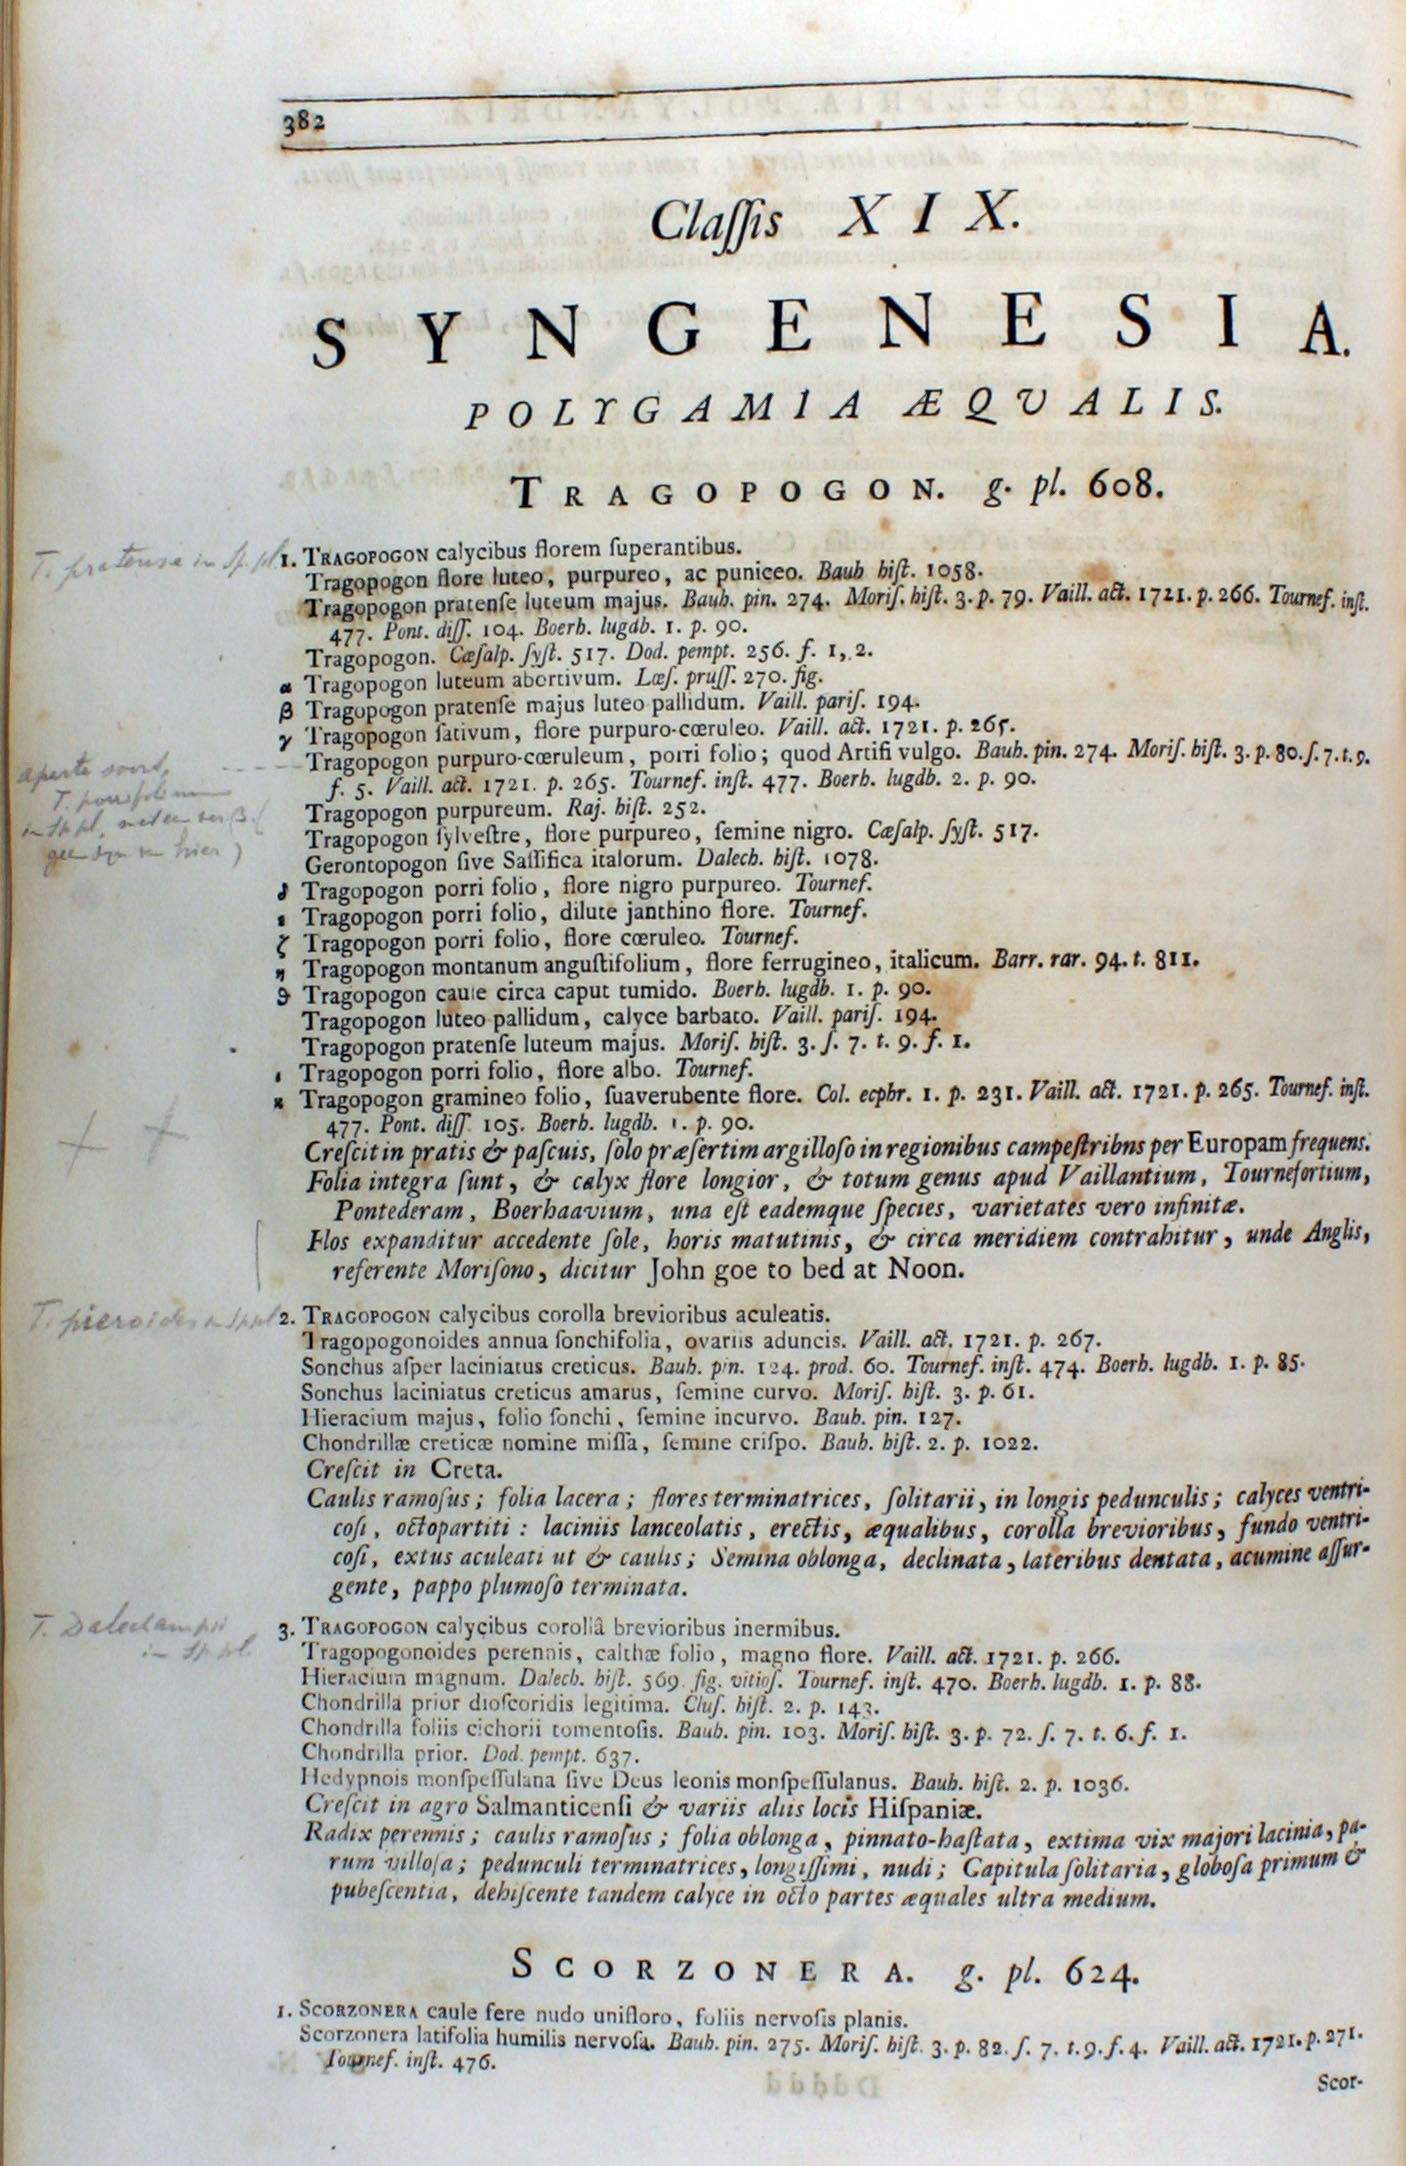 382
Claſſis XIX.
SYNGENESIA.
POLYGAMIA ÆQVALIS.
TRAGOPOGON. g. pl. 608.
T. pratense in Sp. pl.
1. TRAGOPOGON calycibus florem ſuperantibus.
Tragopogon flore luteo, purpureo, ac puniceo. Baub hiſt. 1058.
Tragopogon pratenſe luteum majus. Bauh. pin. 274. Moriſ. hiſt. 3. p. 79. Vaill. act. 1721. p. 266. Tournef. inſt.
477. Pont. diſſ. 104. Boerh. lugdb. 1. p. 90.
Tragopogon. Cæſalp. ſyſt. 517. Dod. pempt. 256. f. 1, 2.
α Tragopogon luteum abortivum. Læſ. pruſſ. 270. fig.
β Tragopogon pratenſe majus luteo pallidum. Vaill. pariſ. 194.
γ Tragopogon ſativum, flore purpuro-cœruleo. Vaill. act. 1721. p. 265.
Tragopogon purpuro-cœruleum, porri folio; quod Artifi vulgo. Bauh. pin. 274. Moriſ. hiſt. 3. p. 80. ſ. 7. t. 9.
f. 5. Vaill. act. 1721. p. 265. Tournef. inſt. 477. Boerh. lugdb. 2. p. 90.
aparte soort,
T. porrifolium
in Sp pl,
hier)
Tragopogon purpureum. Raj. hiſt. 252.
Tragopogon ſylveſtre, flore purpureo, ſemine nigro. Cæſalp. ſyſt. 517.
Gerontopogon ſive Saſſifica italorum. Dalech. hiſt. 1078.
δ Tragopogon porri folio, flore nigro purpureo. Tournef.
ε Tragopogon porri folio, dilute janthino flore. Tournef.
ζ Tragopogon porri folio, flore cœruleo. Tournef.
η Tragopogon montanum anguſtifolium, flore ferrugineo, italicum. Barr. rar. 94. t. 811.
ϑ Tragopogon caule circa caput tumido. Boerh. lugdb. 1. p. 90.
Tragopogon luteo pallidum, calyce barbato. Vaill. pariſ. 194.
Tragopogon pratenſe luteum majus. Moriſ. hiſt. 3. ſ. 7. t. 9. f. 1.
ι Tragopogon porri folio, flore albo. Tournef.
κ Tragopogon gramineo folio, ſuaverubente flore. Col. ecphr. 1. p. 231. Vaill. act. 1721. p. 265. Tournef. inſt.
477. Pont. diſſ. 105. Boerh. lugdb. 1. p. 90.
Creſcit in pratis & paſcuis, ſolo præſertim argilloſo in regionibus campeſtribns per Europam frequens.
Folia integra ſunt, & calyx flore longior, & totum genus apud Vaillantium, Tournefortium,
Pontederam, Boerhaavium, una eſt eademque ſpecies, varietates vero infinitæ.
Flos expanditur accedente ſole, horis matutinis, & circa meridiem contrahitur, unde Anglis,
referente Moriſono, dicitur John goe to bed at Noon.
T. picroides in Sp pl
2. TRAGOPOGON calycibus corolla brevioribus aculeatis.
Tragopogonoides annua ſonchifolia, ovariis aduncis. Vaill. act. 1721. p. 267.
Sonchus aſper laciniatus creticus. Bauh. pin. 124. prod. 60. Tournef. inſt. 474. Boerh. lugdb. 1. p. 85.
Sonchus laciniatus creticus amarus, ſemine curvo. Moriſ. hiſt. 3. p. 61.
Hieracium majus, folio ſonchi, ſemine incurvo. Bauh. pin. 127.
Chondrillæ creticæ nomine miſſa, ſemine criſpo. Bauh. hiſt. 2. p. 1022.
Creſcit in Creta.
Caulis ramoſus; folia lacera; flores terminatrices, ſolitarii, in longis pedunculis; calyces ventri-
coſi, octopartiti: laciniis lanceolatis, erectis, æqualibus, corolla brevioribus, fundo ventri-
coſi, extus aculeati ut & caulis; Semina oblonga, declinata, lateribus dentata, acumine aſſur-
gente, pappo plumoſo terminata.
T. Dalechampii
in Sp. pl.
3. TRAGOPOGON calycibus corollâ brevioribus inermibus.
Tragopogonoides perennis, calthæ folio, magno flore. Vaill. act. 1721. p. 266.
Hieracium magnum. Dalech. hiſt. 569. fig. vitioſ. Tournef. inſt. 470. Boerh. lugdb. 1. p. 88.
Chondrilla prior dioſcoridis legitima. Cluſ. hiſt. 2. p. 143.
Chondrilla foliis cichorii tomentoſis. Bauh. pin. 103. Moriſ. hiſt. 3. p. 72. ſ. 7. t. 6. f. 1.
Chondrilla prior. Dod. pempt. 637.
Hedypnois monſpeſſulana ſive Deus leonis monſpeſſulanus. Bauh. hiſt. 2. p. 1036.
Creſcit in agro Salmanticenſi & variis aliis locis Hiſpaniæ.
Radix perennis; caulis ramoſus; folia oblonga, pinnato-haſtata, extima vix majori lacinia, pa-
rum villoſa; pedunculi terminatrices, longiſſimi, nudi; Capitula ſolitaria, globoſa primum &
pubeſcentia, dehiſcente tandem calyce in octo partes æquales ultra medium.
SCORZONERA. g. pl. 624.
1. SCORZONERA caule fere nudo unifloro, foliis nervoſis planis.
Scorzonera latifolia humilis nervoſa. Bauh. pin. 275. Moriſ. hiſt. 3. p. 82. ſ. 7. t. 9. f. 4. Vaill. act. 1721. p. 271.
Tournef. inſt. 476.
Scor-